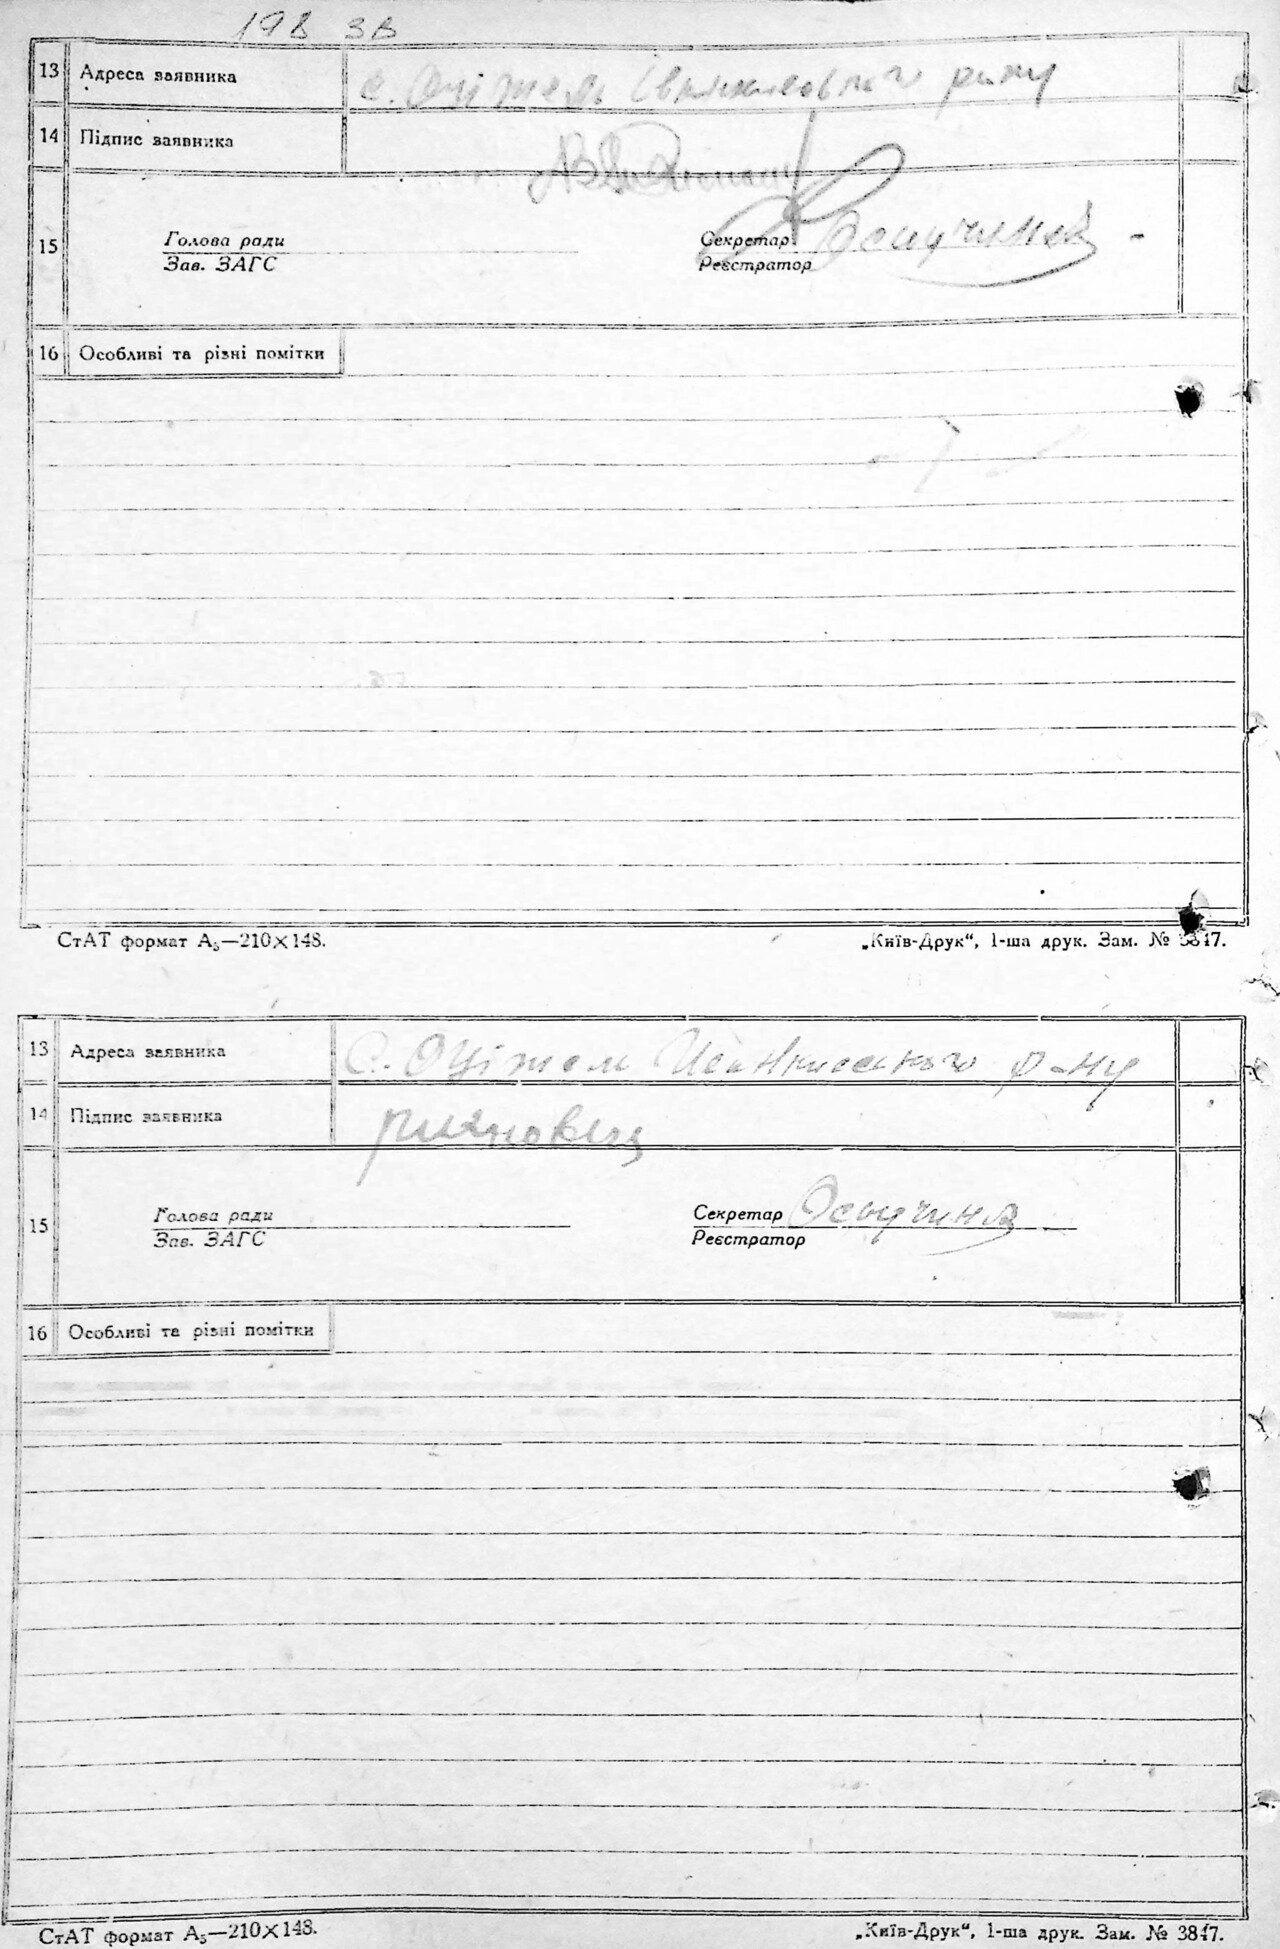 198 зв
13 Адреса заявника с. Оцітель
14 Підпис заявника
15 Голова ради Секретар Осьучиний
Зав. ЗАГС Реєстратор
16 Особливі та різні помітки
СтАТ формат А₅—210×148. „Київ-Друк“, 1-ша друк. Зам. № 3847.
13 Адреса заявника С. Оцітель р-ну
14 Підпис заявника
15 Голова ради Секретар
Зав. ЗАГС Реєстратор
16 Особливі та різні помітки
СтАТ формат А₅—210×148. „Київ-Друк“, 1-ша друк. Зам. № 3847.